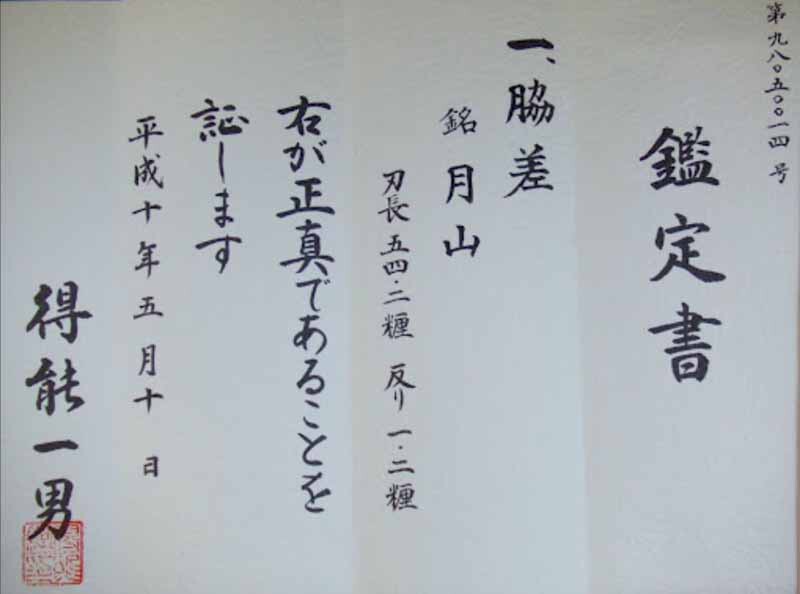 第九八〇五〇〇一四号
鑑定書
一、脇差
銘 月山
刃長五四・二糎 反り一・二糎
右が正真であることを
証します
平成十年五月十日
得能一男